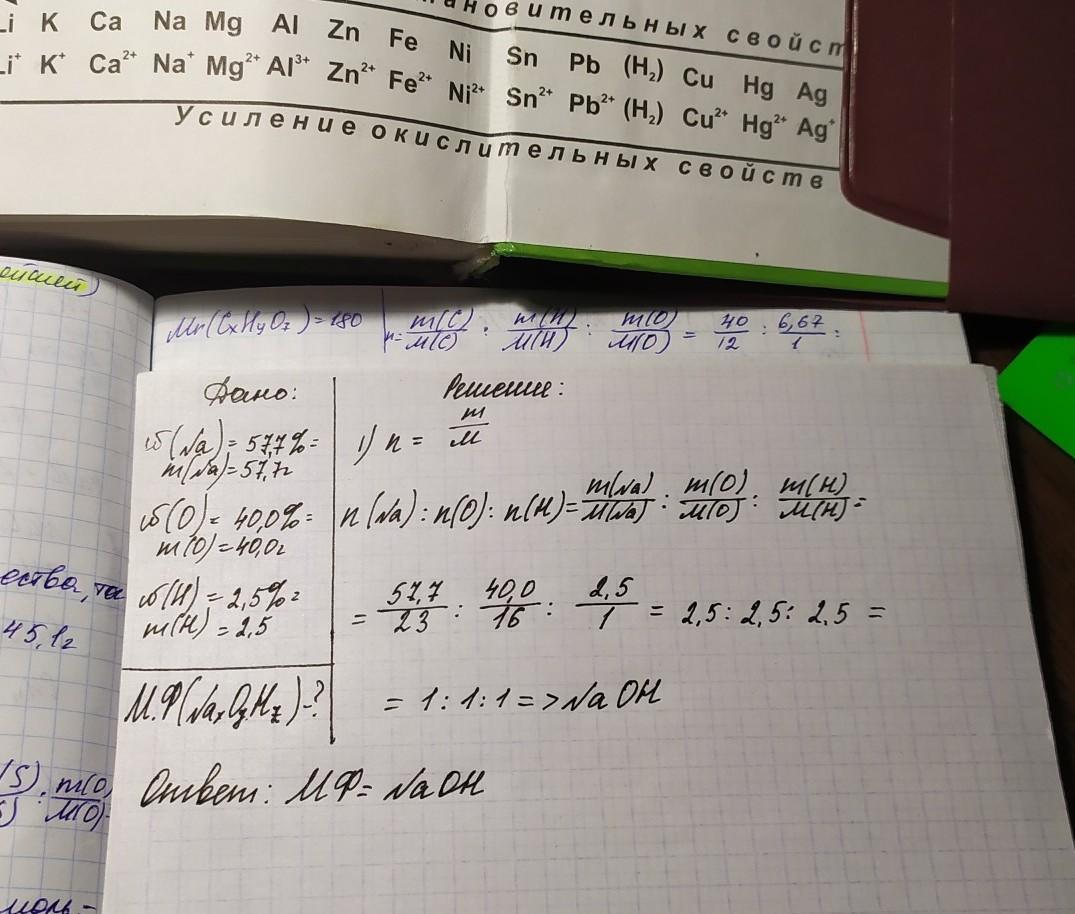 ановительных свойст
Li K Ca Na Mg Al Zn Fe Ni Sn Pb (H₂) Cu Hg Ag
Li⁺ K⁺ Ca²⁺ Na⁺ Mg²⁺ Al³⁺ Zn²⁺ Fe²⁺ Ni²⁺ Sn²⁺ Pb²⁺ (H₂) Cu²⁺ Hg²⁺ Ag⁺
Усиление окислительных свойств
Mr(CxHyOz)=180 n= m(C)/M(C) : m(H)/M(H) : m(O)/M(O) = 40/12 : 6,67/1 :
Дано:
ω(Na) = 57,7% =
m(Na)=57,7г
ω(O)= 40,0% =
m(O)=40,0г
ω(H) = 2,5% =
m(H) = 2,5
М.Ф(NaxOyHz)-?
Решение:
1) n = m/M
n(Na) : n(O) : n(H)= m(Na)/M(Na) : m(O)/M(O) : m(H)/M(H) =
= 57,7/23 : 40,0/16 : 2,5/1 = 2,5 : 2,5 : 2,5 =
= 1 : 1 : 1 => NaOH
Ответ: МФ= NaOH
ества, то
45,1г
m(O)
M(O)
моль =